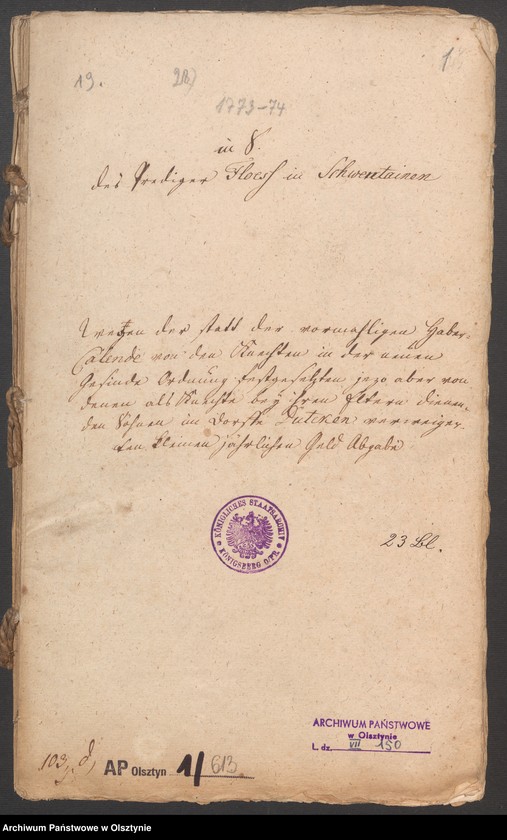 19.
1
1773-74
in S.
des Prediger Floess in Schwentainen
Wegen der statt der vormahligen Haber-
Calende von den Knechten in der neuen
Gesinde Ordnung festgesetzten jezo aber von
denen als Knechte bey ihren Eltern dienen-
den Söhnen im Dorffe Dutcken verweiger-
ten kleinen jährlichen Geld Abgabe
KÖNIGLICHES STAATSARCHIV
KÖNIGSBERG O/PR.
23 Bl.
ARCHIWUM PAŃSTWOWE
w Olsztynie
L. dz. VII 150
103, d,
AP Olsztyn 1/613
Archiwum Państwowe w Olsztynie